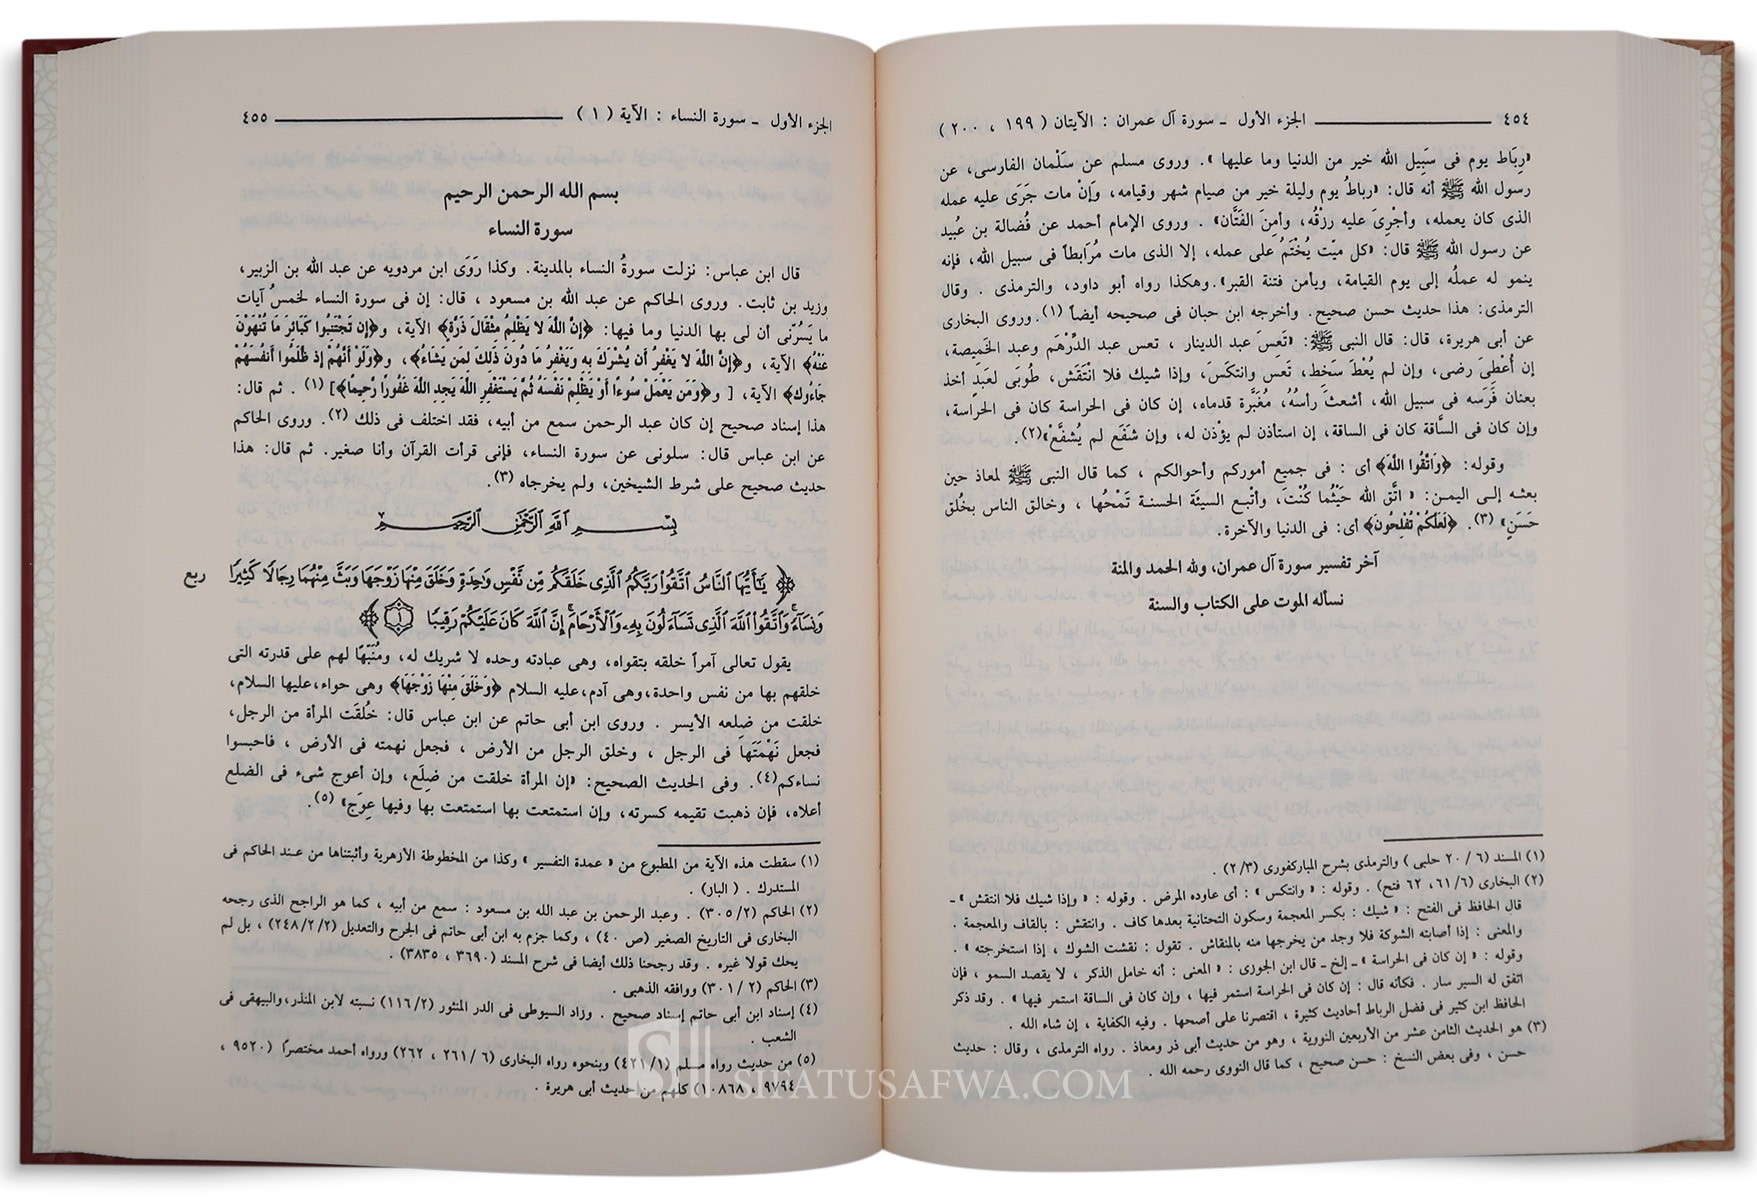 ٤٥٤ ــــــــــــ الجزء الأول ـ سورة آل عمران : الآيتان ( ١٩٩ ، ٢٠٠ )
«رِبَاط يوم فى سَبِيل الله خير من الدنيا وما عليها » . وروى مسلم عن سَلْمان الفارسى، عن
رسول الله ﷺ أنه قال: «رباطُ يوم وليلة خير من صيام شهر وقيامه، وَإِنْ مات جَرَى عليه عمله
الذى كان يعمله، وأجْرِىَ عليه رزْقُه، وأمِنَ الفَتَّان» . وروى الإمام أحمد عن فُضالة بن عُبيد
عن رسول الله ﷺ قال: «كل ميّت يُخْتَمُ على عمله، إلا الذى مات مُرَابطاً فى سبيل الله، فإنه
ينمو له عملُه إلى يوم القيامة، ويأمن فتنة القبر».وهكذا رواه أبو داود، والترمذى . وقال
الترمذى: هذا حديث حسن صحيح. وأخرجه ابن حبان فى صحيحه أيضاً (١).وروى البخارى
عن أبى هريرة، قال: قال النبى ﷺ: «تَعِسَ عبد الدينار ، تعس عبد الدِّرْهَم وعبد الخَمِيصة،
إن أُعْطِىَ رضى، وإن لم يُعْطَ سَخِط، تَعَس وانتكَسَ، وإذا شيك فلا انْتَقَش، طُوبَى لعَبدٍ أخذ
بعنان فَرَسه فى سبيل الله، أشعثَ رأسُهُ، مُغَبَّرة قدماه، إن كان فى الحراسة كان فى الحراسة،
وإن كان فى السَّاقة كان فى الساقة، إن استأذن لم يؤْذن له، وإن شَفَع لم يُشفَّعْ»(٢).
وقوله: ﴿وَاتَّقُوا اللَّهَ﴾ أى : فى جميع أموركم وأحوالكم ، كما قال النبى ﷺ لمعاذ حين
بعثه إلى اليمن: « اتَّق الله حَيْثُما كُنْتَ، وأتْبع السيئَة الحسنة تَمْحُها ، وخالق الناس بخُلق
حَسَنٍ» (٣). ﴿لَعَلَّكُمْ تُفْلِحُونَ﴾ أى: فى الدنيا والآخرة.
آخر تفسير سورة آل عمران، ولله الحمد والمنة
نسأله الموت على الكتاب والسنة
(١) المسند (٦ / ٢٠ حلبى ) والترمذى بشرح المباركفورى (٢/٣) .
(٢) البخارى (٦ /٦١، ٦٢ فتح) . وقوله : « وانتكس » : أى عاوده المرض . وقوله : « وإذا شيك فلا انتقش » ـ
قال الحافظ فى الفتح : « شيك : بكسر المعجمة وسكون التحتانية بعدها كاف . وانتقش : بالقاف والمعجمة .
والمعنى : إذا أصابته الشوكة فلا وجد من يخرجها منه بالمنقاش . تقول : نقشت الشوك ، إذا استخرجته » .
وقوله : « إن كان فى الحراسة » ـ إلخ ـ قال ابن الجوزى : « المعنى : أنه خامل الذكر ، لا يقصد السمو ، فإن
اتفق له السير سار . فكأنه قال : إن كان فى الحراسة استمر فيها ، وإن كان فى الساقة استمر فيها » . وقد ذكر
الحافظ ابن كثير فى فضل الرباط أحاديث كثيرة ، اقتصرنا على أصحها . وفيه الكفاية ، إن شاء الله .
(٣) هو الحديث الثامن عشر من الأربعين النووية ، وهو من حديث أبى ذر ومعاذ . رواه الترمذى ، وقال : حديث
حسن ، وفى بعض النسخ : حسن صحيح ، كما قال النووى رحمه الله .
الجزء الأول ـ سورة النساء : الآية ( ١ ) ــــــــــــ ٤٥٥
بسم الله الرحمن الرحيم
سورة النساء
قال ابن عباس: نزلت سورةُ النساء بالمدينة. وكذا رَوَى ابن مردويه عن عبد الله بن الزبير،
وزيد بن ثابت. وروى الحاكم عن عبد الله بن مسعود ، قال: إن فى سورة النساء لخمسُ آيات
ما يَسُرّنى أن لى بها الدنيا وما فيها: ﴿إِنَّ اللَّهَ لا يَظْلِمُ مِثْقَالَ ذَرَّةٍ﴾ الآية، و﴿إِن تَجْتَنِبُوا كَبَائِرَ مَا تُنْهَوْنَ
عَنْهُ﴾ الآية، و﴿إِنَّ اللَّهَ لا يَغْفِرُ أَن يُشْرَكَ بِهِ وَيَغْفِرُ مَا دُونَ ذَلِكَ لِمَن يَشَاءُ﴾ ، و﴿وَلَوْ أَنَّهُمْ إِذ ظَّلَمُوا أَنفُسَهُمْ
جَاءُوكَ﴾ الآية، [ و﴿وَمَن يَعْمَلْ سُوءًا أَوْ يَظْلِمْ نَفْسَهُ ثُمَّ يَسْتَغْفِرِ اللَّهَ يَجِدِ اللَّهَ غَفُورًا رَّحِيمًا﴾] (١) . ثم قال:
هذا إسناد صحيح إن كان عبد الرحمن سمع من أبيه، فقد اختلف فى ذلك (٢). وروى الحاكم
عن ابن عباس قال: سلونى عن سورة النساء، فإنى قرأت القرآن وأنا صغير. ثم قال: هذا
حديث صحيح على شرط الشيخين، ولم يخرجاه (٣).
بِسْمِ ٱللَّهِ ٱلرَّحْمَٰنِ ٱلرَّحِيمِ
﴿ يَٰٓأَيُّهَا ٱلنَّاسُ ٱتَّقُوا۟ رَبَّكُمُ ٱلَّذِى خَلَقَكُم مِّن نَّفْسٍ وَٰحِدَةٍ وَخَلَقَ مِنْهَا زَوْجَهَا وَبَثَّ مِنْهُمَا رِجَالًا كَثِيرًا ربع
وَنِسَآءً ۚ وَٱتَّقُوا۟ ٱللَّهَ ٱلَّذِى تَسَآءَلُونَ بِهِۦ وَٱلْأَرْحَامَ ۚ إِنَّ ٱللَّهَ كَانَ عَلَيْكُمْ رَقِيبًا ١ ﴾
يقول تعالى آمراً خلقه بتقواه، وهى عبادته وحده لا شريك له، ومُنَبِّهًا لهم على قدرته التى
خلقهم بها من نفس واحدة،وهى آدم،عليه السلام ﴿وَخَلَقَ مِنْهَا زَوْجَهَا﴾ وهى حواء،عليها السلام،
خلقت من ضِلعه الأيسر . وروى ابن أبى حاتم عن ابن عباس قال: خُلقَت المرأة من الرجل،
فجعل نَهْمَتَها فى الرجل ، وخلق الرجل من الأرض ، فجعل نهمته فى الأرض ، فاحبسوا
نساءكم(٤). وفى الحديث الصحيح: «إن المرأة خلقت من ضِلَع، وإن أعوج شىء فى الضلع
أعلاه، فإن ذهبت تقيمه كسرته، وإن استمتعت بها استمتعت بها وفيها عِوَج» (٥).
(١) سقطت هذه الآية من المطبوع من « عمدة التفسير » وكذا من المخطوطة الأزهرية وأثبتناها من عند الحاكم فى
المستدرك . ( الباز) .
(٢) الحاكم (٢/ ٣٠٥) . وعبد الرحمن بن عبد الله بن مسعود : سمع من أبيه ، كما هو الراجح الذى رجحه
البخارى فى التاريخ الصغير (ص ٤٠) ، وكما جزم به ابن أبى حاتم فى الجرح والتعديل (٢/٢/ ٢٤٨) ، بل لم
يحك قولا غيره . وقد رجحنا ذلك أيضا فى شرح المسند (٣٦٩٠ ، ٣٨٣٥) .
(٣) الحاكم (٢ /٣٠١) ووافقه الذهبى .
(٤) إسناد ابن أبى حاتم إسناد صحيح . وزاد السيوطى فى الدر المنثور (٢/ ١١٦) نسبته لابن المنذر،والبيهقى فى
الشعب .
(٥) من حديث رواه مسلم (١/ ٤٢١) وبنحوه رواه البخارى (٦ /٢٦١ ، ٢٦٢) ورواه أحمد مختصرًا (٩٥٢٠ ،
٩٧٩٤ ، ١٠٨٦٨) كلهم من حديث أبى هريرة .
SIFATUSAFWA.COM